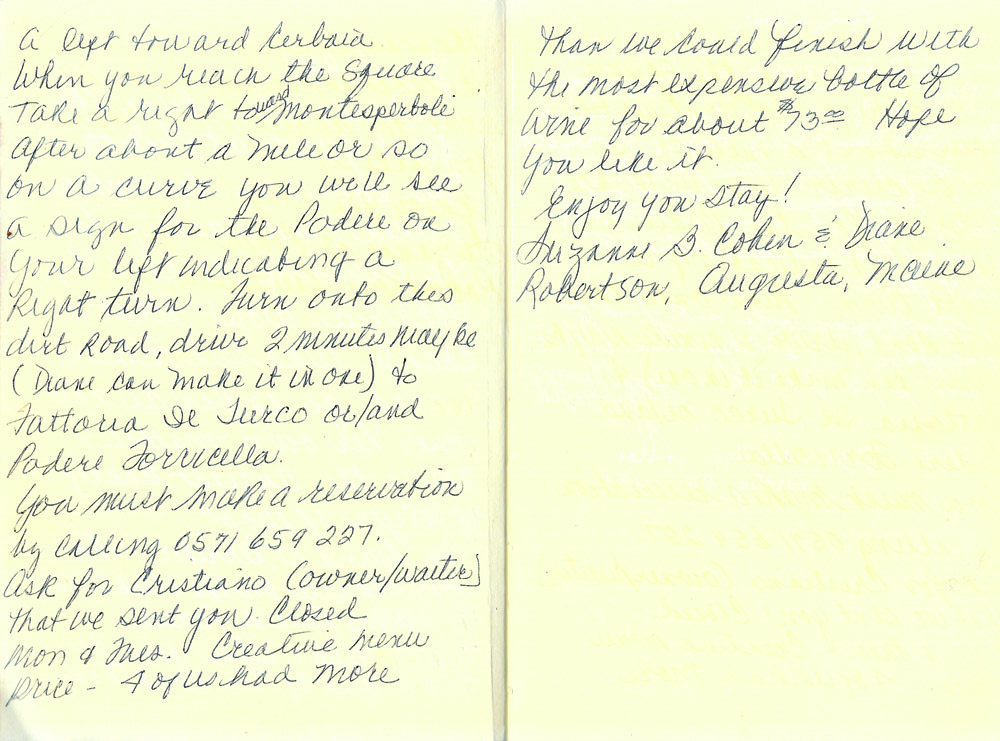 a left toward Cerbaia
When you reach the Square
Take a right toward Montesperboli
After about a mile or so
on a curve you will see
a sign for the Podere on
your left indicating a
Right turn. Turn onto this
dirt Road, drive 2 minutes maybe
(Diane can make it in one) to
Fattoria De Turco or/and
Podere Torricella.
You must make a reservation
by calling 0571 659 227.
Ask for Cristiano (owner/waiter)
that we sent you. Closed
Mon & Tues. Creative menu
price - 4 of us had more
than we could finish with
the most expensive bottle of
wine for about $73.00 Hope
you like it.
Enjoy you stay!
Suzanne B. Cohen & Diane
Robertson, Augusta, Maine